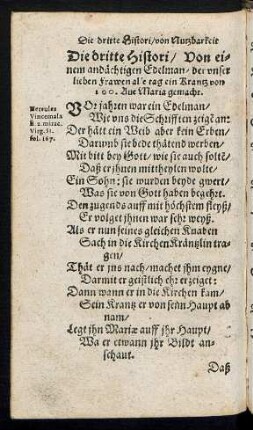 Die dritte Histori/von Nutzbarkeit
Die dritte Histori/ Von ei-
nem andächtigen Edelman/ der vnser
lieben Frawen al'e tag ein Krantz von
100. Aue Maria gemacht.
Hercules
Vincemala
ß. 2. mirac.
Virg. St.
fol. 107.
VOr jahren war ein Edelman/
Wie vns die Schrifften zeig? an:
Der hätt ein Weib aber kein Erben/
Darumb sie bede thätend werben
Mit bitt bey Gott/ wie sie auch solt?/
Daß er jhnen mittheylen wolte/
Ein Sohn: sie wurden beyde gwert/
Was sie von Gott haben begehrt.
Den zugends auff mit höchstem fleyß/
Er volget jhnen war sehr weyß.
Als er nun seines gleichen Knaben
Sach in die Kirchen Kräntzlin tra-
gen/
Thät er jns nach/ machet jhm eygne/
Darmit er geistlich ehr erzeiget:
Dann wann er in die Kirchen kam/
Sein Krantz er von seim Haupt ab
nam/
Legt jhn Mariæ auff jhr Haupt/
Wa er etwann jhr Bildt an-
schaut.
Daß